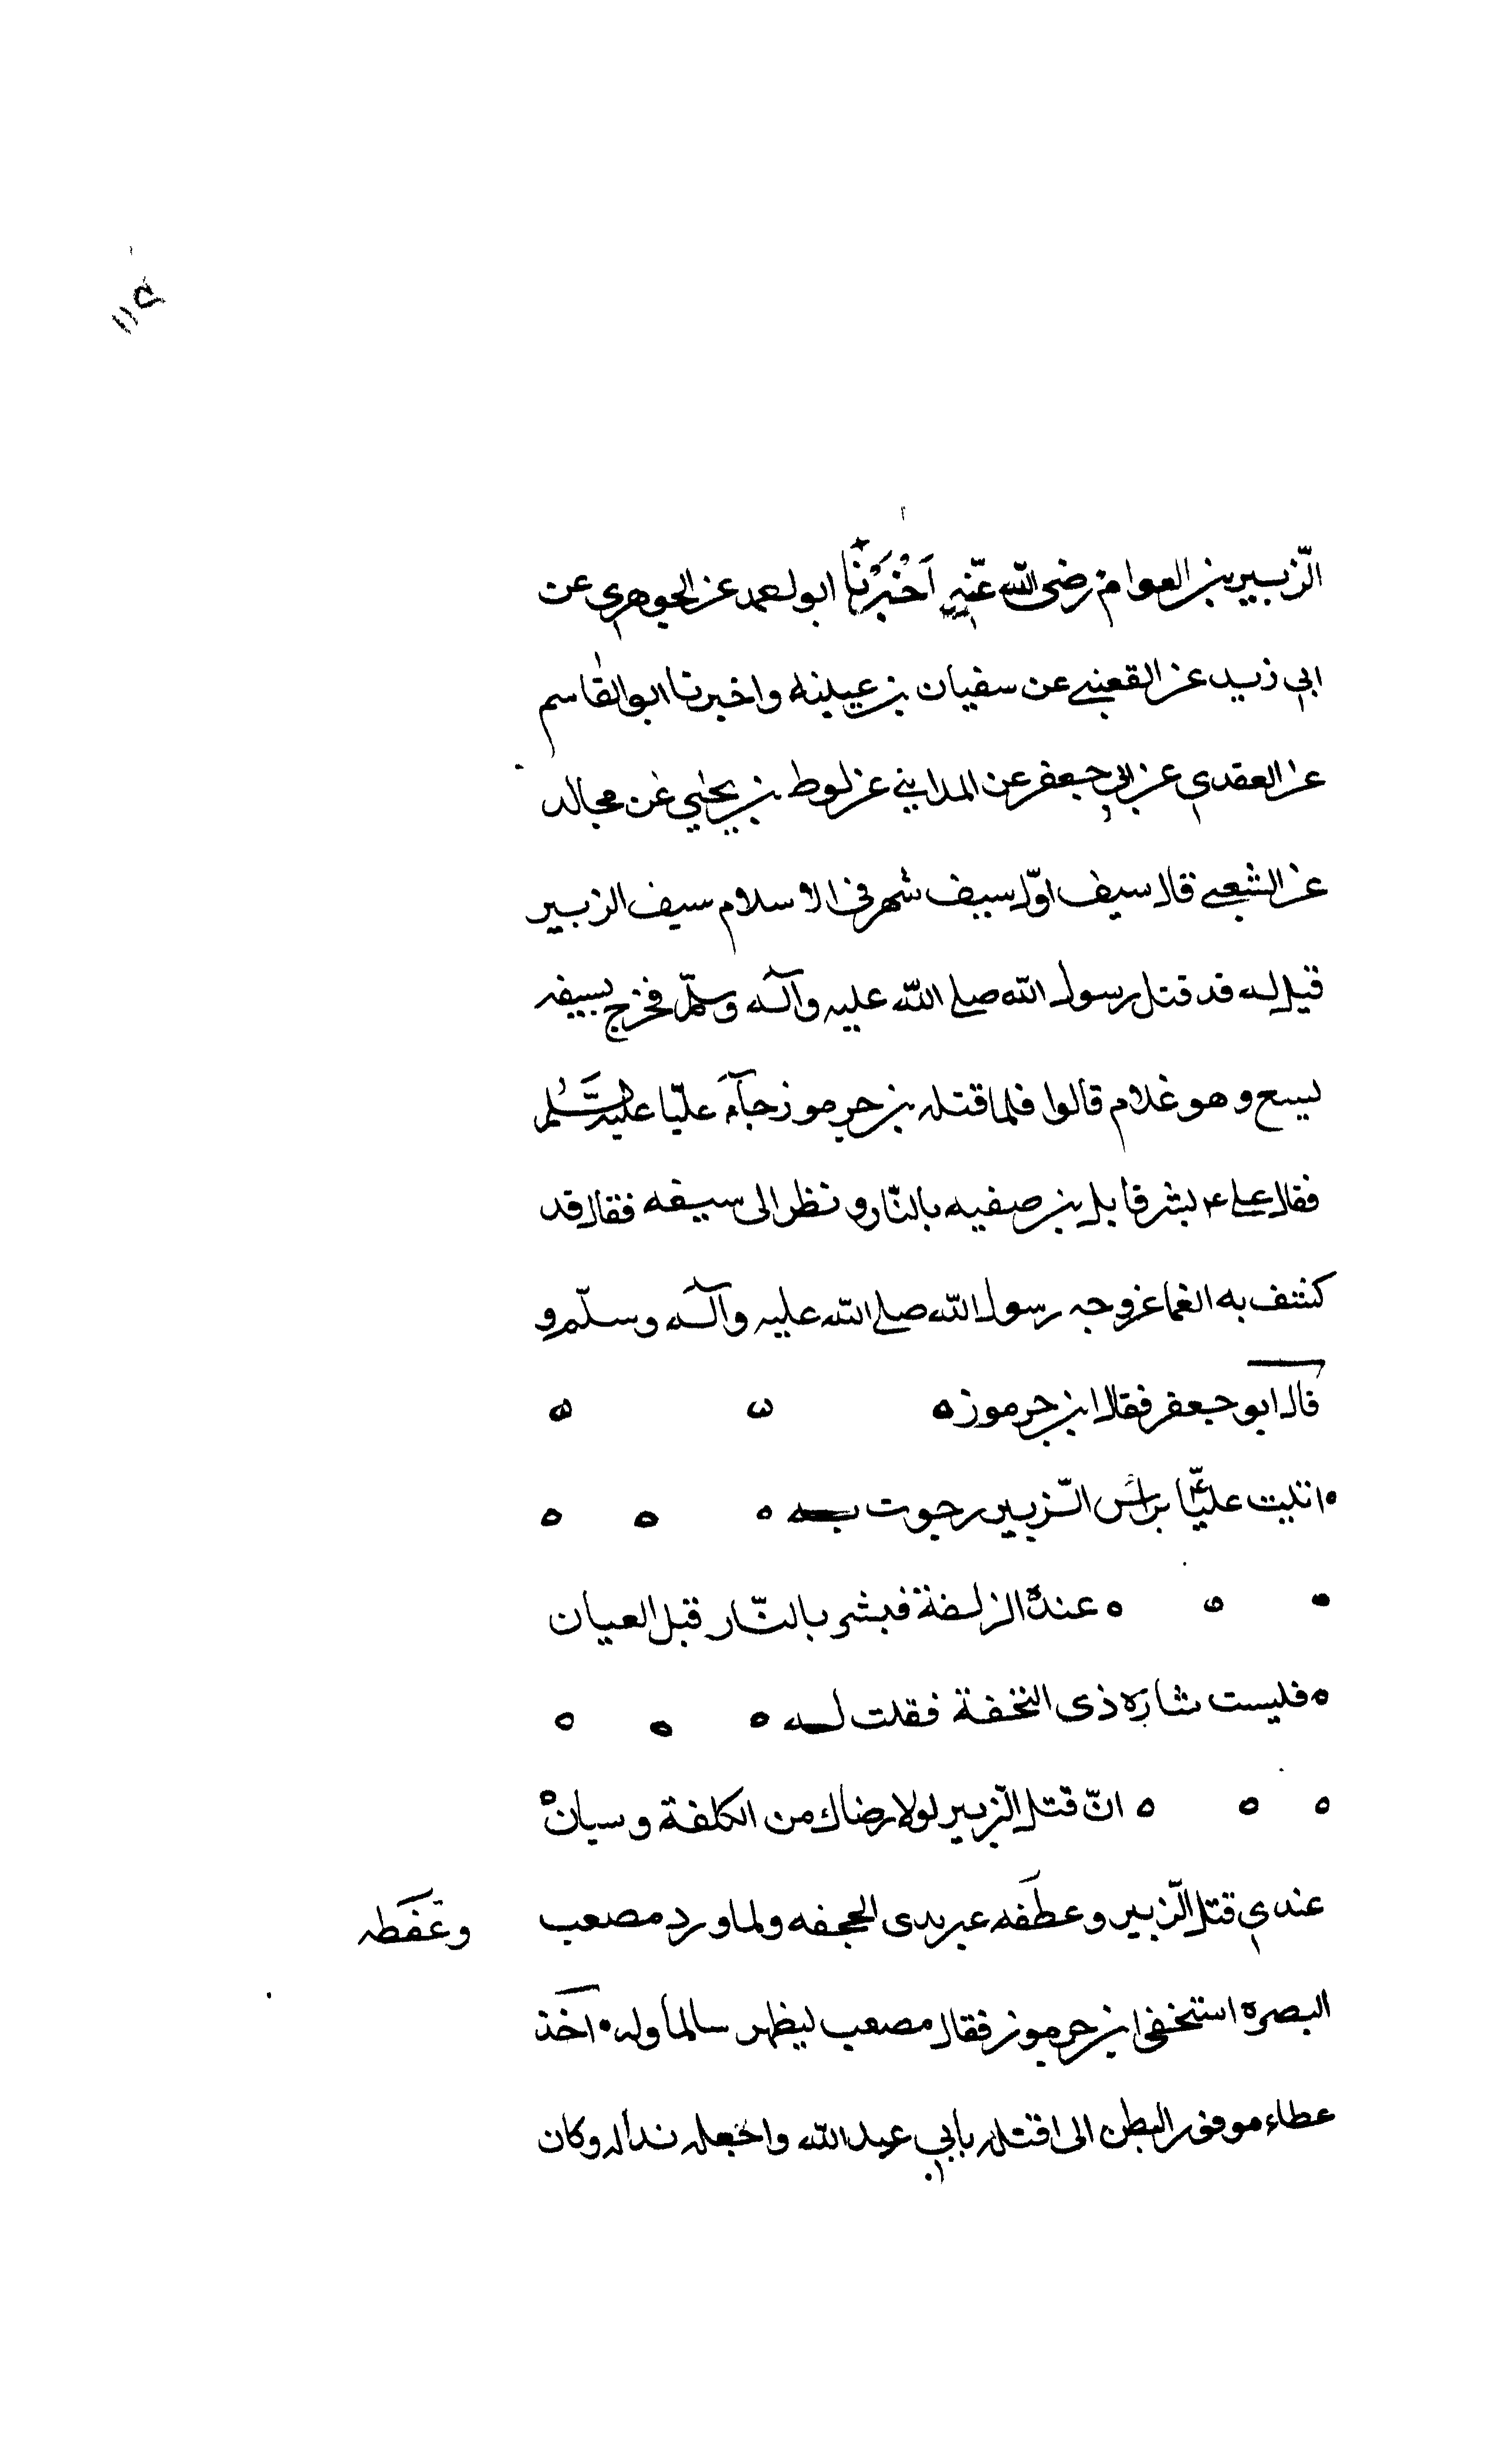 الزّبير بن العوام رضى اللّه عنّه اَخْبَرَنَا ابو احمد عن الجوهري عن
ابي زيد عن القعنبے عن سفيان بن عيينه واخبرنا ابو القاسم
عن العقدي عن ابي جعفر عن المدايني عن لوط بن يحيي عن مجالد
عن الشعبے قال سيف اوّل سيف شهر فى الاسلام سيف الزبير
قيل له قد قتل رسول اللّه صلے اللّه عليه وآله وسلّم فخرج بسيفه
يسع وهو غلام قالوا فلما قتله بن جرموز جآء عليّا عليه السَّلم
فقال علے ء بشر قاىل بن صفيه بالنّار و نظر الى سيفه فقال قد
كشف به الغما عن وجه رسول اللّه صلے اللّه عليه وآله وسلّم و
قال ابو جعفر فقال ابن جرموز ه ه ه
ه اتيت عليّا براس الزّبير رجوت به ه ه ه ه
ه ه ه عنده الزلفة فبشر بالنّار قبل العيان
ه فليست شاره ذى التخفة فقلت له ه ه ه
ه ه ه انّ قتل الزّبير لولا رضاك من الكلفة وسيان ه
عندي قتل الزّبير وعطفه عير بدى الجحفه ولما ورد مصعب
وعَفَطه
البصره استخفى ابن جرموز فقال مصعب ليظهر سالما وله اخذ
عطاء موفور البطن الى اقتله بابي عبد اللّه واجعله ندا له وكان